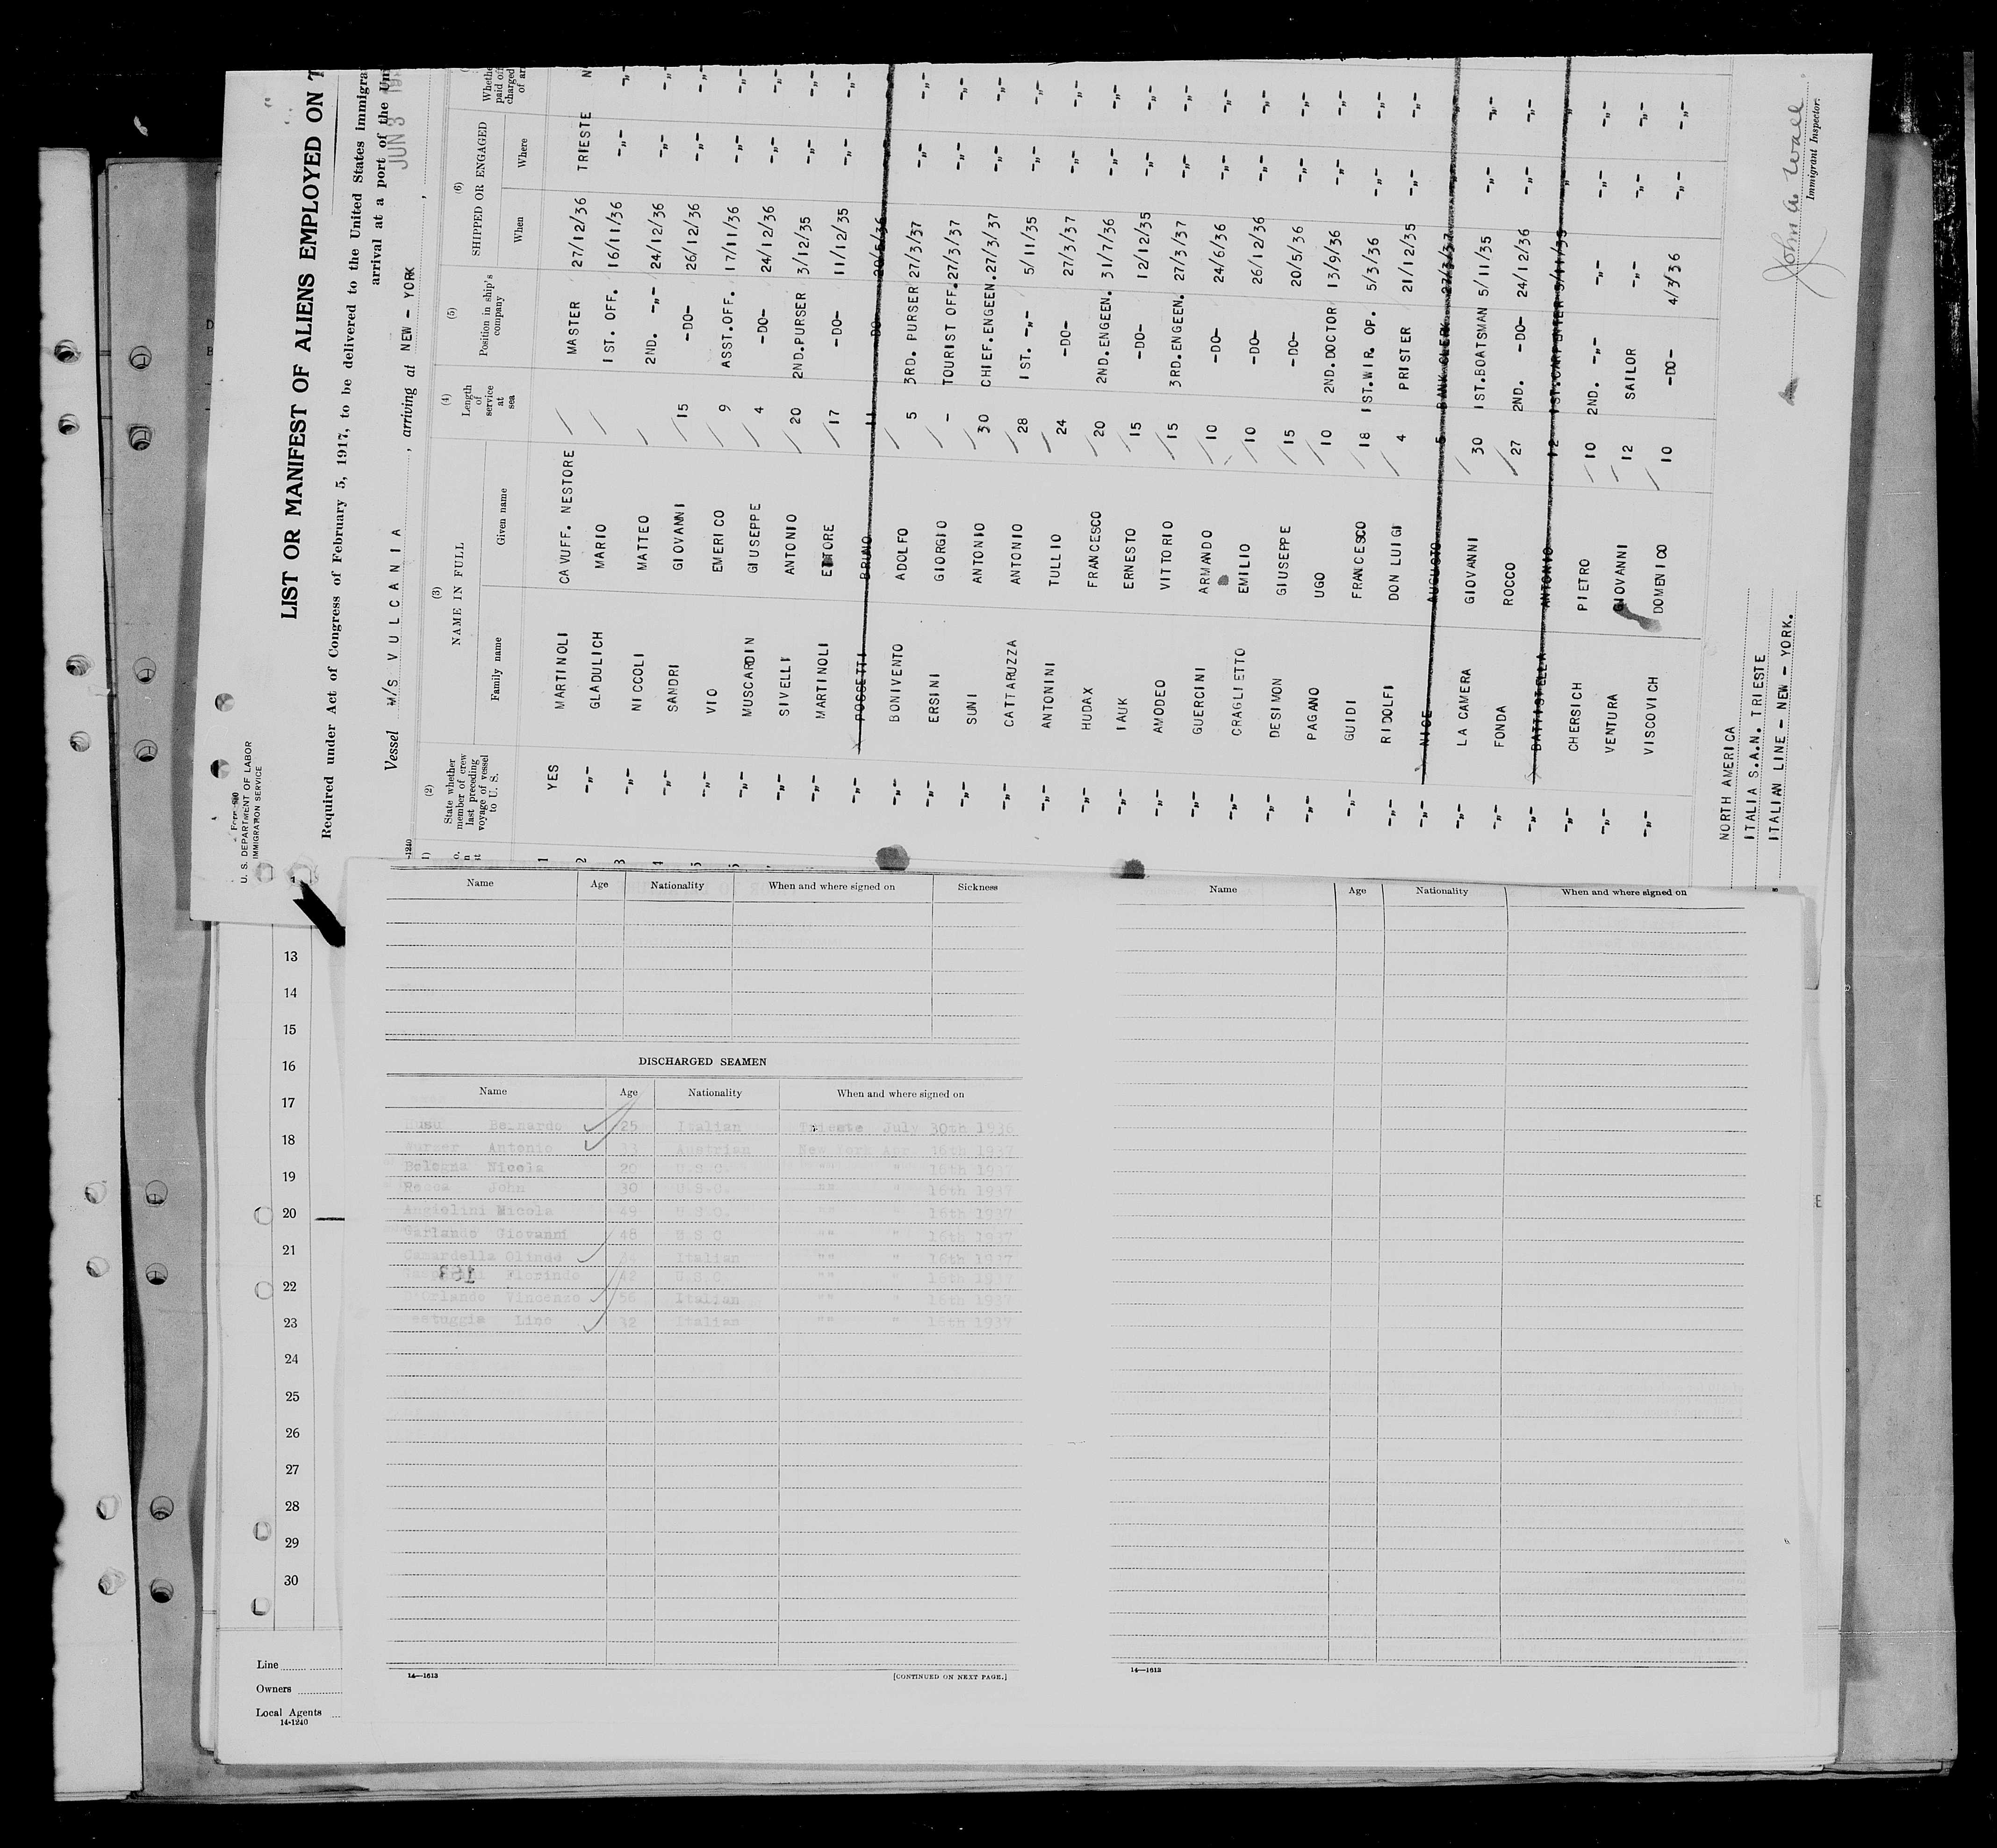 U. S. DEPARTMENT OF LABOR
IMMIGRATION SERVICE
LIST OR MANIFEST OF ALIENS EMPLOYED ON T
Required under Act of Congress of February 5, 1917, to be delivered to the United States immigra
arrival at a port of the Un
JUN 3 19
Vessel M/S VULCANIA, arriving at NEW - YORK,
(2) (3) (4) (5) (6)
State whether member of crew last preceding voyage of vessel to U. S. NAME IN FULL Length of service at sea Position in ship's company SHIPPED OR ENGAGED
Family name Given name When Where
1 YES MARTINOLI CAVUFF. NESTORE MASTER 27/12/36 TRIESTE N
2 -„- GLADULICH MARIO 1ST. OFF. 16/11/36 -„- -„-
3 -„- NICCOLI MATTEO 2ND. -„- 24/12/36 -„- -„-
4 -„- SANDRI GIOVANNI 15 -DO- 26/12/36 -„- -„-
5 -„- VIO EMERICO 9 ASST.OFF. 17/11/36 -„- -„-
-„- MUSCARDIN GIUSEPPE 4 -DO- 24/12/36 -„- -„-
-„- SIVELLI ANTONIO 20 2ND.PURSER 3/12/35 -„- -„-
-„- MARTINOLI ETTORE 17 -DO- 11/12/35 -„- -„-
-„- POSSETTI BRUNO 11 -DO- 20/5/36
-„- BONIVENTO ADOLFO 5 3RD. PURSER 27/3/37 -„- -„-
-„- ERSINI GIORGIO - TOURIST OFF. 27/3/37 -„- -„-
-„- SUNI ANTONIO 30 CHIEF.ENGEEN. 27/3/37 -„- -„-
-„- CATTARUZZA ANTONIO 28 1ST. -„- 5/11/35 -„- -„-
-„- ANTONINI TULLIO 24 -DO- 27/3/37 -„- -„-
-„- HUDAX FRANCESCO 20 2ND.ENGEEN. 31/7/36 -„- -„-
-„- IAUK ERNESTO 15 -DO- 12/12/35 -„- -„-
-„- AMODEO VITTORIO 15 3RD.ENGEEN. 27/3/37 -„- -„-
-„- GUERCINI ARMANDO 10 -DO- 24/6/36 -„- -„-
-„- CRAGLIETTO EMILIO 10 -DO- 26/12/36 -„- -„-
-„- DESIMON GIUSEPPE 15 -DO- 20/5/36 -„- -„-
-„- PAGANO UGO 10 2ND.DOCTOR 13/9/36 -„- -„-
-„- GUIDI FRANCESCO 18 1ST.WIR. OP. 5/3/36 -„- -„-
-„- RIDOLFI DON LUIGI 4 PRISTER 21/12/35 -„- -„-
-„- NICE AUGUSTO 5 BANK CLERK 27/3/37
-„- LA CAMERA GIOVANNI 30 1ST.BOATSMAN 5/11/35 -„- -„-
-„- FONDA ROCCO 27 2ND. -DO- 24/12/36 -„- -„-
-„- BATTISTELLA ANTONIO 12 1ST.CARPENTER 5/11/35
-„- CHERSICH PIETRO 10 2ND. -„- -„- -„- -„-
-„- VENTURA GIOVANNI 12 SAILOR -„- -„- -„-
-„- VISCOVICH DOMENICO 10 -DO- 4/3/36 -„- -„-
NORTH AMERICA
ITALIA S.A.N. TRIESTE
ITALIAN LINE - NEW - YORK.
John A. Wall
Immigrant Inspector.
Name Age Nationality When and where signed on Sickness
DISCHARGED SEAMEN
Name Age Nationality When and where signed on
Bernardo 25 Italian Trieste July 30th 1936
Antonio 33 Austrian New York Apr. 16th 1937
Bologna Nicola 20 U.S.C. "" " 16th 1937
John 30 U.S.C. "" " 16th 1937
Angiolini Nicola 49 U.S.C. "" " 16th 1937
Garlando Giovanni 48 U.S.C. "" " 16th 1937
Camardella Olindo Italian "" " 16th 1937
Florindo 42 U.S.C. "" " 16th 1937
Vincenzo 56 Italian "" " 16th 1937
Lino 32 Italian "" " 16th 1937
14—1613
[CONTINUED ON NEXT PAGE.]
Name Age Nationality When and where signed on
14—1613
13
14
15
16
17
18
19
20
21
22
23
24
25
26
27
28
29
30
Line
Owners
Local Agents
14-1240